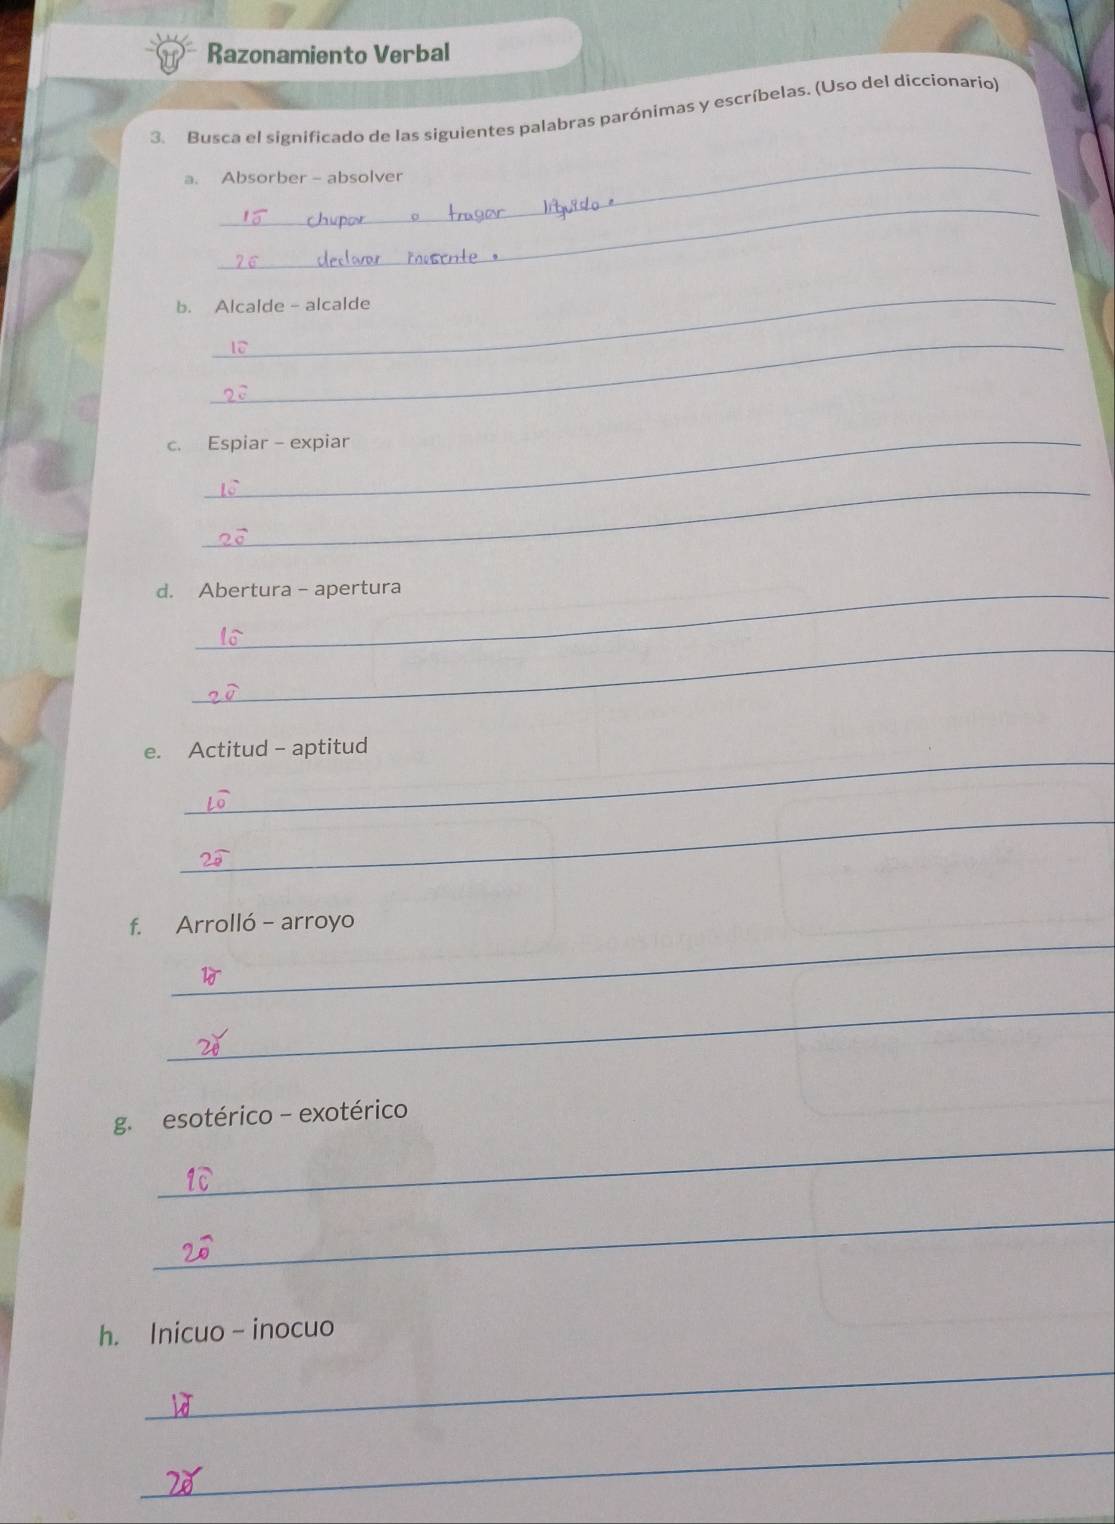 Razonamiento Verbal
3. Busca el significado de las siguientes palabras parónimas y escríbelas. (Uso del diccionario)
a. Absorber - absolver
1o chupar o tragar líquido.
2o declarar inosente.
b. Alcalde - alcalde
1o
2o
c. Espiar - expiar
1o
2o
d. Abertura - apertura
1o
2o
e. Actitud - aptitud
1o
2o
f. Arrolló - arroyo
1o
2o
g. esotérico - exotérico
1o
2o
h. Inicuo - inocuo
1o
2o